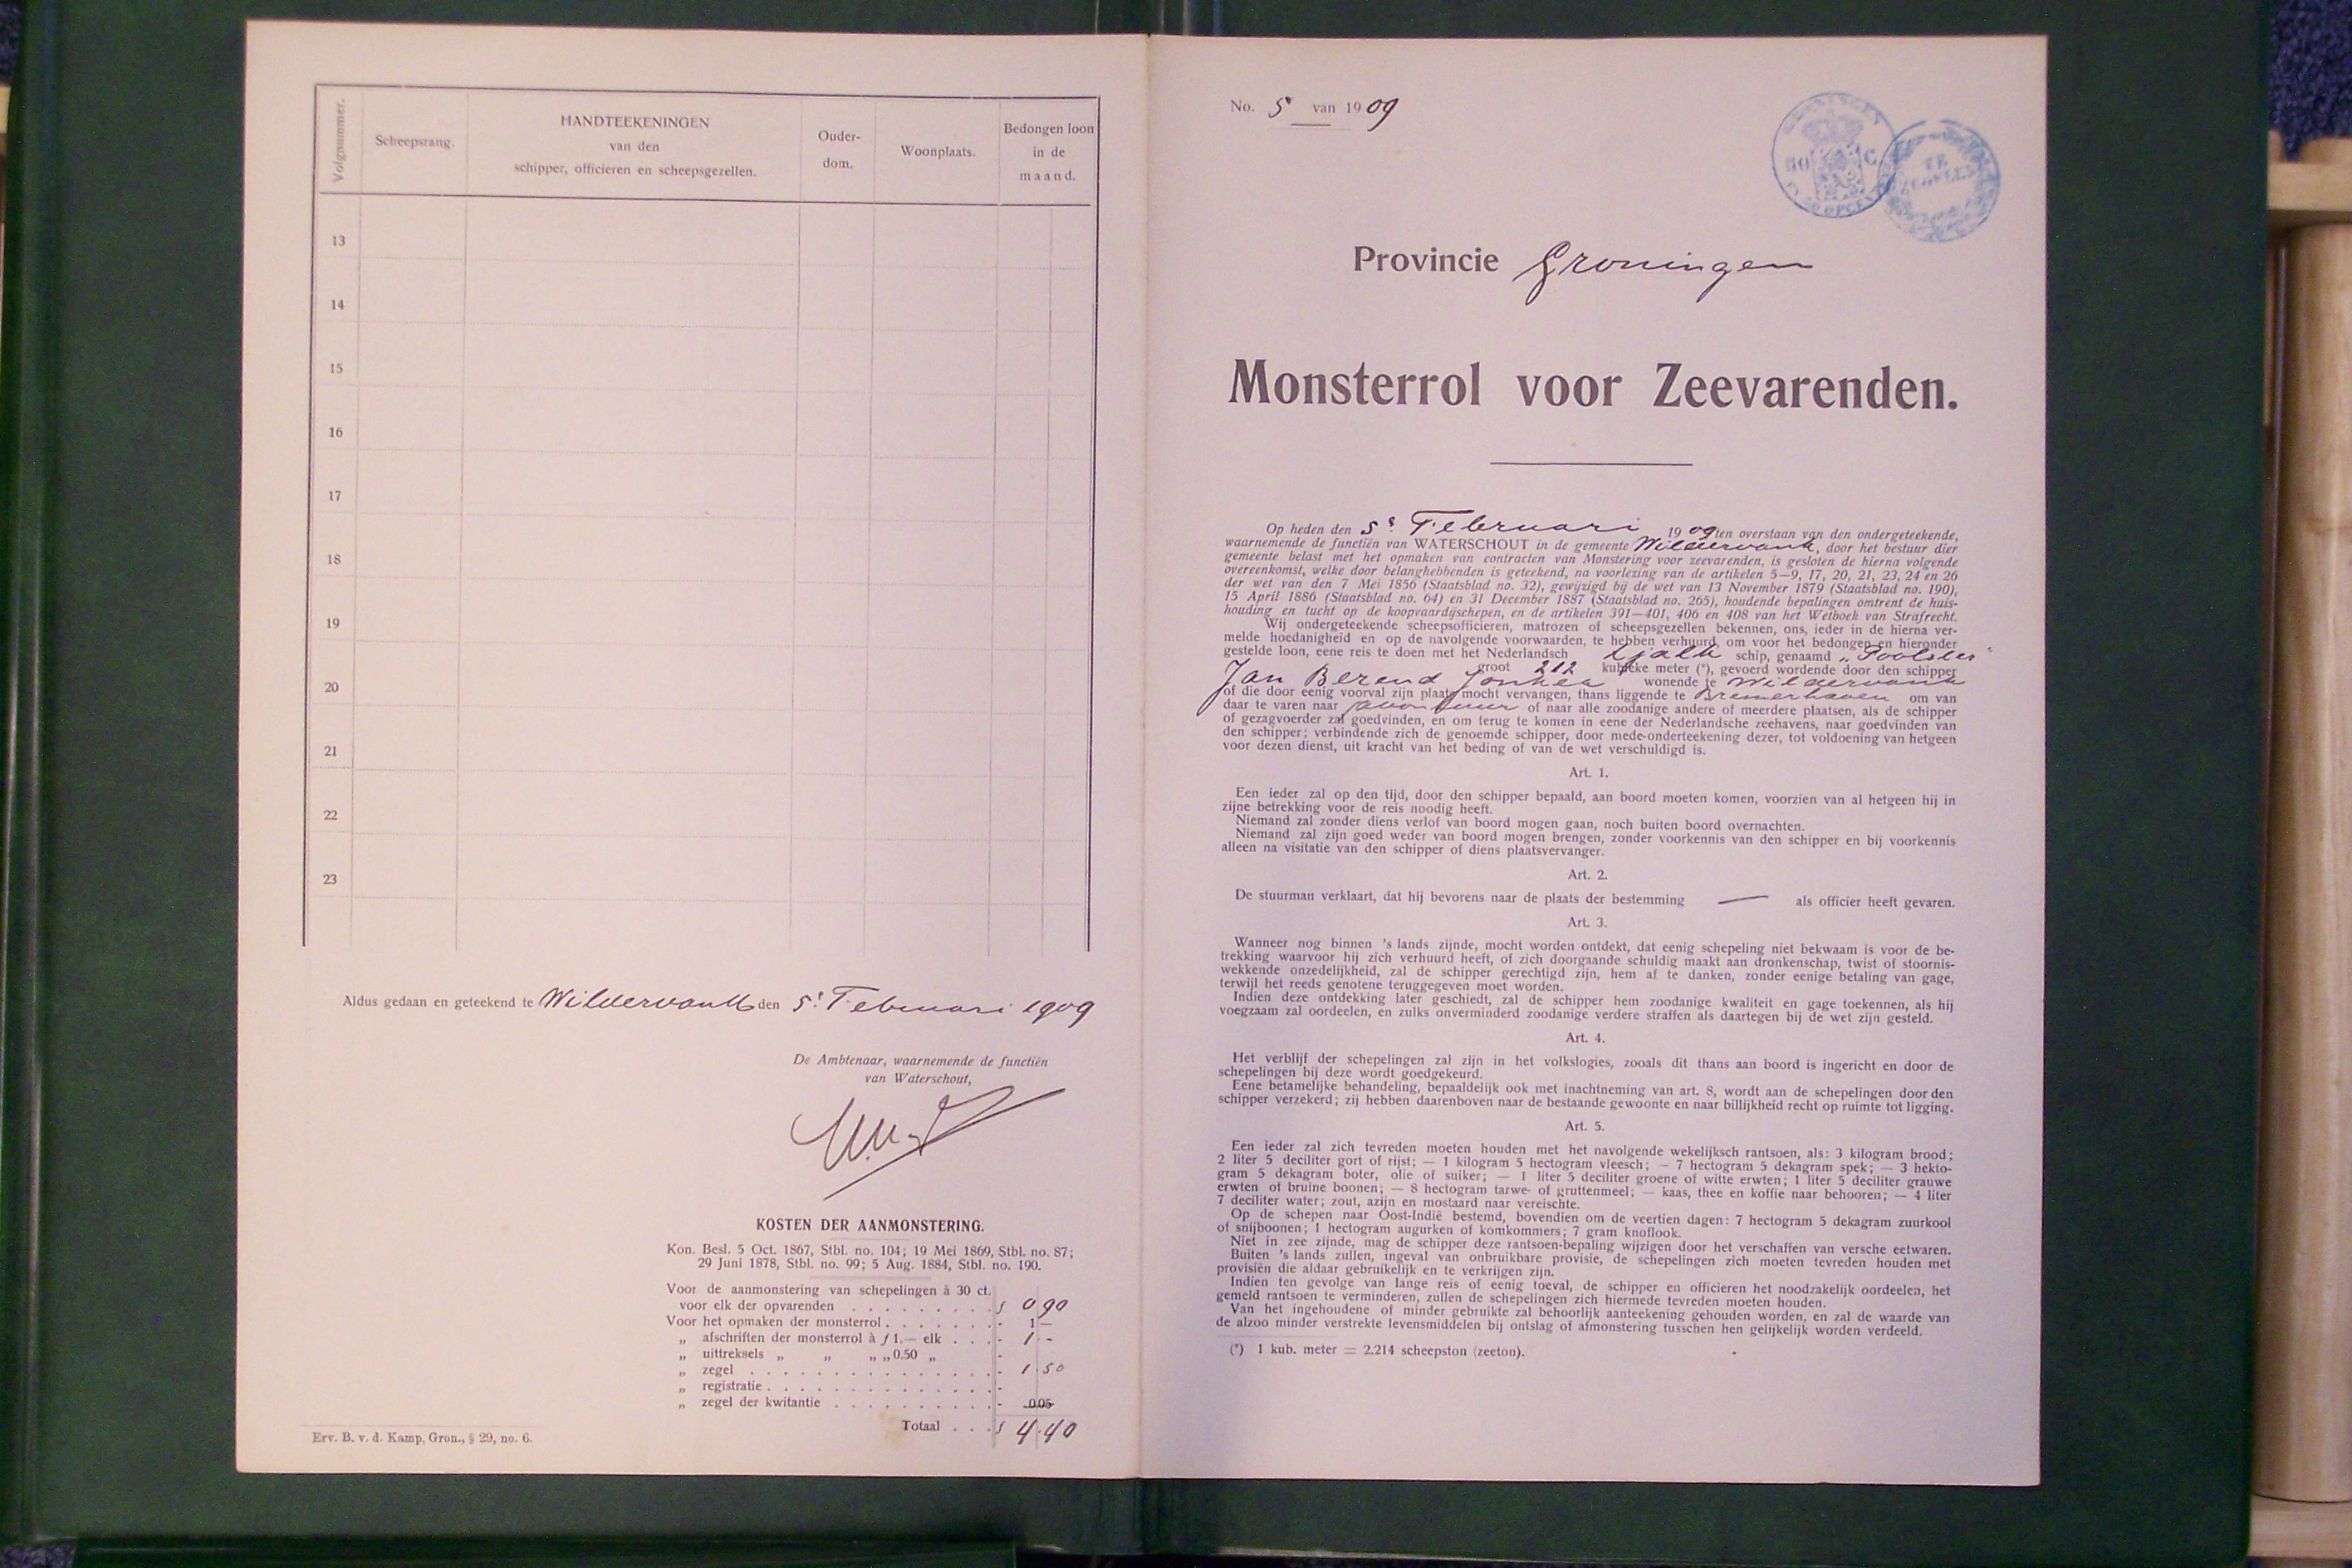 Volgnummer.
Scheepsrang.
HANDTEEKENINGEN
van den
schipper, officieren en scheepsgezellen.
Ouder-
dom.
Woonplaats.
Bedongen loon
in de
maand.
13
14
15
16
17
18
19
20
21
22
23
Aldus gedaan en geteekend te Wildervank den 5e Februari 1909
De Ambtenaar, waarnemende de functiën
van Waterschout,
KOSTEN DER AANMONSTERING.
Kon. Besl. 5 Oct. 1867, Stbl. no. 104; 19 Mei 1869, Stbl. no. 87;
29 Juni 1878, Stbl. no. 99; 5 Aug. 1884, Stbl. no. 190.
Voor de aanmonstering van schepelingen à 30 ct.
voor elk der opvarenden . . . . . . . . . f 0 90
Voor het opmaken der monsterrol . . . . . . . - 1 —
„ afschriften der monsterrol à ƒ 1.— elk . . . - 1 -
„ uittreksels „ „ „ „ 0.50 „ -
„ zegel . . . . . . . . . . . . . . . - 1.50
„ registratie . . . . . . . . . . . . . . -
„ zegel der kwitantie . . . . . . . . . . - 0.05
Totaal . . . f 4.40
Erv. B. v. d. Kamp, Gron., § 29, no. 6.
No. 5 van 1909
50 C.
TE
Provincie Groningen
Monsterrol voor Zeevarenden.
Op heden den 5e Februari 1909 ten overstaan van den ondergeteekende,
waarnemende de functiën van WATERSCHOUT in de gemeente Wildervank, door het bestuur dier
gemeente belast met het opmaken van contracten van Monstering voor zeevarenden, is gesloten de hierna volgende
overeenkomst, welke door belanghebbenden is geteekend, na voorlezing van de artikelen 5—9, 17, 20, 21, 23, 24 en 26
der wet van den 7 Mei 1856 (Staatsblad no. 32), gewijzigd bij de wet van 13 November 1879 (Staatsblad no. 190),
15 April 1886 (Staatsblad no. 64) en 31 December 1887 (Staatsblad no. 265), houdende bepalingen omtrent de huis-
houding en tucht op de koopvaardijschepen, en de artikelen 391—401, 406 en 408 van het Wetboek van Strafrecht.
Wij ondergeteekende scheepsofficieren, matrozen of scheepsgezellen bekennen, ons, ieder in de hierna ver-
melde hoedanigheid en op de navolgende voorwaarden, te hebben verhuurd, om voor het bedongen en hieronder
gestelde loon, eene reis te doen met het Nederlandsch tjalk schip, genaamd „Poolster"
groot 212 kubieke meter (*), gevoerd wordende door den schipper
Jan Berend Jonker wonende te Wildervank
of die door eenig voorval zijn plaats mocht vervangen, thans liggende te Bremerhaven om van
daar te varen naar avontuur of naar alle zoodanige andere of meerdere plaatsen, als de schipper
of gezagvoerder zal goedvinden, en om terug te komen in eene der Nederlandsche zeehavens, naar goedvinden van
den schipper; verbindende zich de genoemde schipper, door mede-onderteekening dezer, tot voldoening van hetgeen
voor dezen dienst, uit kracht van het beding of van de wet verschuldigd is.
Art. 1.
Een ieder zal op den tijd, door den schipper bepaald, aan boord moeten komen, voorzien van al hetgeen hij in
zijne betrekking voor de reis noodig heeft.
Niemand zal zonder diens verlof van boord mogen gaan, noch buiten boord overnachten.
Niemand zal zijn goed weder van boord mogen brengen, zonder voorkennis van den schipper en bij voorkennis
alleen na visitatie van den schipper of diens plaatsvervanger.
Art. 2.
De stuurman verklaart, dat hij bevorens naar de plaats der bestemming — als officier heeft gevaren.
Art. 3.
Wanneer nog binnen 's lands zijnde, mocht worden ontdekt, dat eenig schepeling niet bekwaam is voor de be-
trekking waarvoor hij zich verhuurd heeft, of zich doorgaande schuldig maakt aan dronkenschap, twist of stoornis-
wekkende onzedelijkheid, zal de schipper gerechtigd zijn, hem af te danken, zonder eenige betaling van gage,
terwijl het reeds genotene teruggegeven moet worden.
Indien deze ontdekking later geschiedt, zal de schipper hem zoodanige kwaliteit en gage toekennen, als hij
voegzaam zal oordeelen, en zulks onverminderd zoodanige verdere straffen als daartegen bij de wet zijn gesteld.
Art. 4.
Het verblijf der schepelingen zal zijn in het volkslogies, zooals dit thans aan boord is ingericht en door de
schepelingen bij deze wordt goedgekeurd.
Eene betamelijke behandeling, bepaaldelijk ook met inachtneming van art. 8, wordt aan de schepelingen door den
schipper verzekerd; zij hebben daarenboven naar de bestaande gewoonte en naar billijkheid recht op ruimte tot ligging.
Art. 5.
Een ieder zal zich tevreden moeten houden met het navolgende wekelijksch rantsoen, als: 3 kilogram brood;
2 liter 5 deciliter gort of rijst; — 1 kilogram 5 hectogram vleesch; — 7 hectogram 5 dekagram spek; — 3 hekto-
gram 5 dekagram boter, olie of suiker; — 1 liter 5 deciliter groene of witte erwten; 1 liter 5 deciliter grauwe
erwten of bruine boonen; — 8 hectogram tarwe- of gruttenmeel; — kaas, thee en koffie naar behooren; — 4 liter
7 deciliter water; zout, azijn en mostaard naar vereischte.
Op de schepen naar Oost-Indië bestemd, bovendien om de veertien dagen: 7 hectogram 5 dekagram zuurkool
of snijboonen; 1 hectogram augurken of komkommers; 7 gram knoflook.
Niet in zee zijnde, mag de schipper deze rantsoen-bepaling wijzigen door het verschaffen van versche eetwaren.
Buiten 's lands zullen, ingeval van onbruikbare provisie, de schepelingen zich moeten tevreden houden met
provisiën die aldaar gebruikelijk en te verkrijgen zijn.
Indien ten gevolge van lange reis of eenig toeval, de schipper en officieren het noodzakelijk oordeelen, het
gemeld rantsoen te verminderen, zullen de schepelingen zich hiermede tevreden moeten houden.
Van het ingehoudene of minder gebruikte zal behoorlijk aanteekening gehouden worden, en zal de waarde van
de alzoo minder verstrekte levensmiddelen bij ontslag of afmonstering tusschen hen gelijkelijk worden verdeeld.
(*) 1 kub. meter = 2.214 scheepston (zeeton).